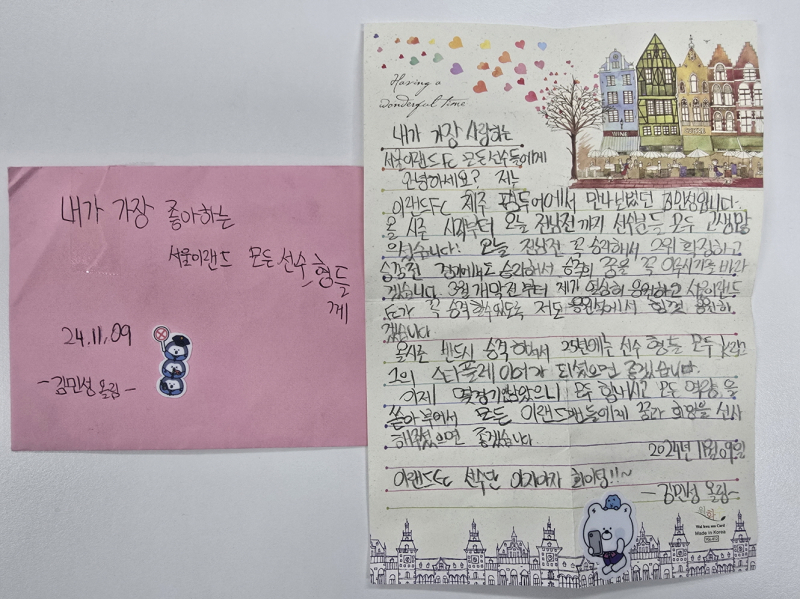 내가 가장 좋아하는
서울이랜드 모든 선수
형들
께
24.11.09
-김민성 올림-
Having a
wonderful time
WINE
내가 가장 사랑하는
서울이랜드FC 모든선수들에게
안녕하세요? 저는
이랜드FC 제주 팸투어에서 만나뵈었던 김민성입니다.
올 시즌 시작부터 오늘 전남전까지 선수분들 모두 고생많
으셨습니다! 오늘 전남전 꼭 승리해서 2위 확정하고
승강전 경기에서도 승리해서 승격의 꿈을 꼭 이루시기를 바라
겠습니다 3월 개막전부터 제가 열심히 응원하고 서울이랜드
FC가 꼭 승격할수있도록 저도 응원석에서 힘껏 응원하
겠습니다
올시즌 반드시 승격하여서 25년에는 선수 형들 모두 K리그
1의 스타플레이어가 되셨으면 좋겠습니다.
이제 몇경기 남았으니 모두 힘내시고 모든 역량을
쏟아부어서 모든 이랜드팬들에게 꿈과 희망을 선사
해주셨으면 좋겠습니다
2024년 11월 09일
이랜드FC 선수단 아자아자 화이팅!!~
-김민성 올림-
Made in Korea